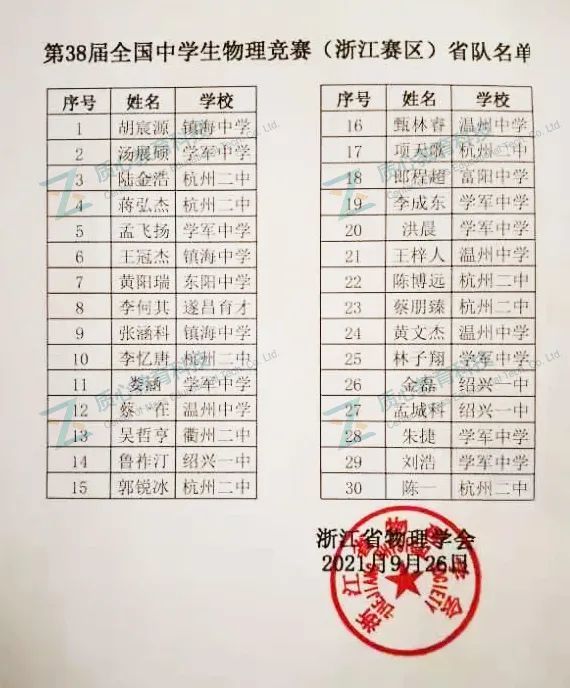 第38届全国中学生物理竞赛（浙江赛区）省队名单
序号 姓名 学校
1 胡宸源 镇海中学
2 汤展硕 学军中学
3 陆金浩 杭州二中
4 蒋弘杰 杭州二中
5 孟飞扬 学军中学
6 王冠杰 镇海中学
7 黄阳瑞 东阳中学
8 李何其 遂昌育才
9 张涵科 镇海中学
10 李忆唐 杭州二中
11 娄涵 学军中学
12 蔡一在 温州中学
13 吴哲亨 衢州二中
14 鲁祚汀 绍兴一中
15 郭锐冰 杭州二中
序号 姓名 学校
16 甄林睿 温州中学
17 项天歌 杭州二中
18 郎程超 富阳中学
19 李成东 学军中学
20 洪晨 学军中学
21 王梓人 温州中学
22 陈博远 杭州二中
23 蔡朋臻 杭州二中
24 黄文杰 温州中学
25 林子翔 学军中学
26 金磊 绍兴一中
27 孟城科 绍兴一中
28 朱捷 学军中学
29 刘浩 学军中学
30 陈一 杭州二中
浙江省物理学会
2021月9月26日
浙江省物理学会
质心教育科技